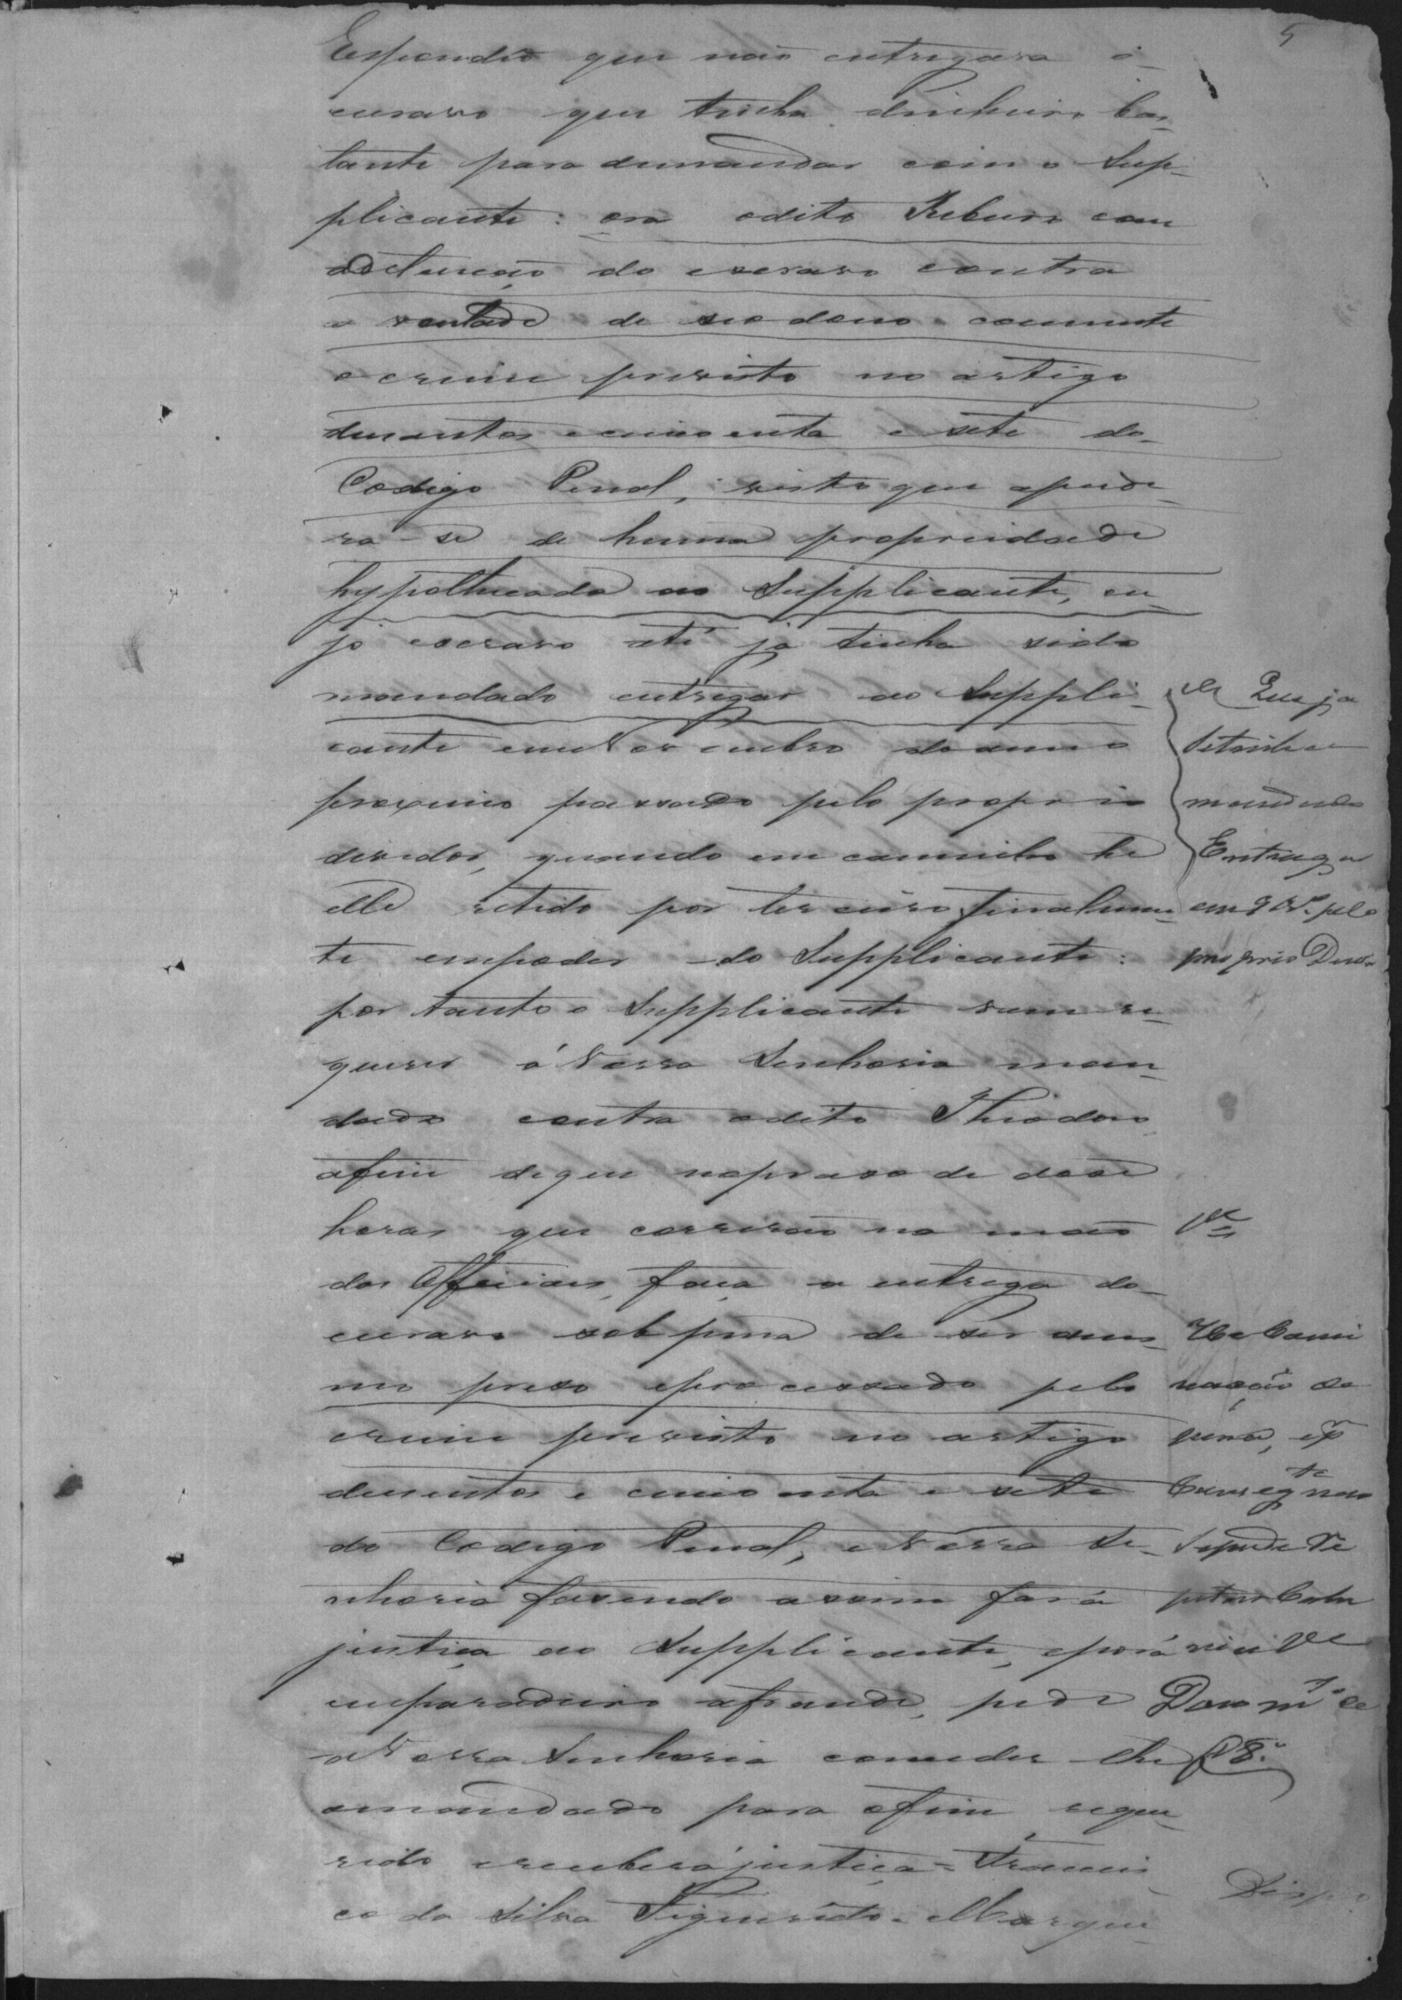 5
Respondeo que não entregava o
escravo que tinha dinheiro bas-
tante para demandar com o Sup-
plicante: ora odito com
a detenção do escravo contra
a vontade de seo dono commette
o crime previsto no artigo
dusentos e cincoenta e sete do
Codigo Penal, visto que apode-
ra-se de huma propriedade
hypothecada ao Supplicante, cu-
jo escravo até já tinha sido
mandado entregar ao Suppli-
cante em Novembro do anno
proximo passado pelo proprio
devedor, quando em caminho he
elle retido por terceiro, finalmen-
te empoder do Supplicante:
por tanto o Supplicante vem re-
querer á Vossa Senhoria man-
dado contra odito Theodoro
afim deque no praso de dose
horas que correrão na mão
dos Officiaes, faça a entrega do
escravo sob pena de ser o mes-
mo preso eprocessado pelo
crime previsto no artigo
dusentos e cincoenta e sete
do Codigo Penal, e Vossa Se-
nhoria fasendo assim fará
justiça ao Supplicante, eporá
emparadeiro afraude, pede
a Vossa Senhoria conceder-lhe
omandado para ofim reque-
rido e receberá justiça = Francis-
co da Silva Figueredo. Marque-
Que ja
mandado
Entregar
em 9br.º pelo
proprio Deve
nação da
pena, e